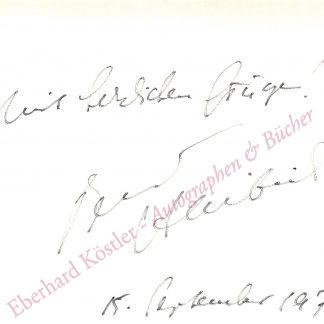 Mit herzlichen Grüßen!
Eberhard Köstler - Autographen & Bücher
15. September 197